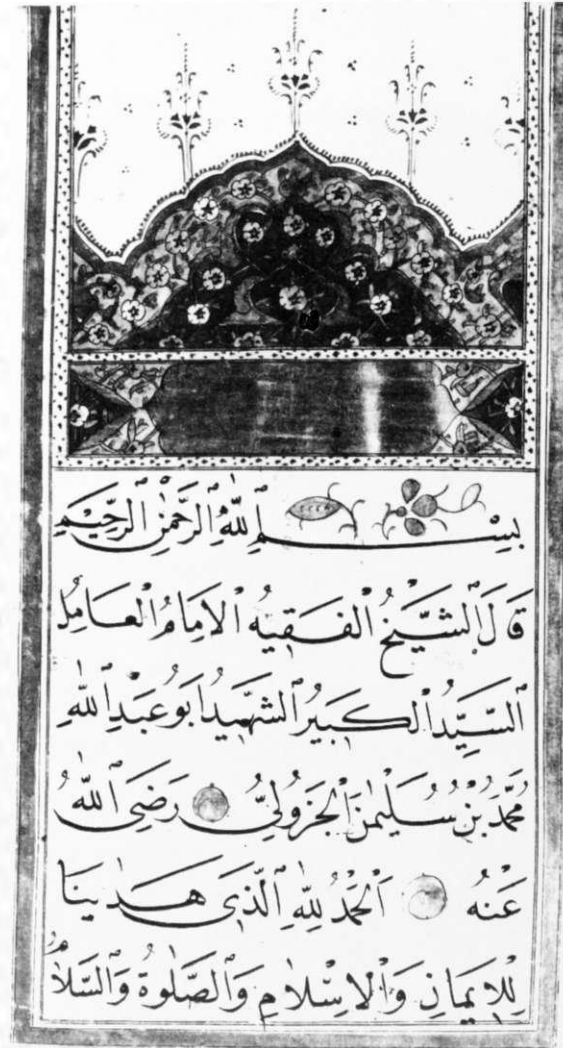 بِسْمِ ٱللَّهِ ٱلرَّحْمٰنِ ٱلرَّحِيمِ
قَالَ ٱلشَّيْخُ ٱلْفَقِيهُ ٱلْاِمَامُ ٱلْعَامِلُ
ٱلسَّيِّدُ ٱلْكَبِيرُ ٱلشَّهِيدُ اَبُو عَبْدِ ٱللَّهِ
مُحَمَّدُ بْنُ سُلَيْمٰنَ ٱلْجَزُولِىُّ رَضِىَ ٱللَّهُ
عَنْهُ اَلْحَمْدُ لِلَّهِ ٱلَّذِى هَدٰينَا
لِلْاِيمَانِ وَٱلْاِسْلَامِ وَٱلصَّلٰوةُ وَٱلسَّلَامُ